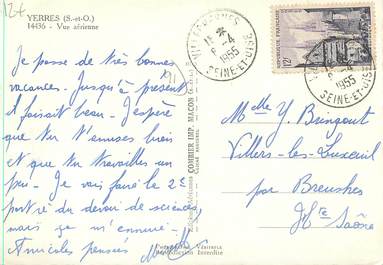 12€
YERRES (S.-et-O.)
14436 - Vue aérienne
Je passe de très bonnes
vacances. Jusqu'à présent
il faisait beau. J'espère
que tu t'amuses bien
et que tu travailles un
peu. Je vais faire le 2e
du devoir de sciences
mais ça m'ennuie.
Amicales pensées
COMBIER IMP. MACON
Reproduction Interdite
SEINE-ET-OISE
-4
1955
REPUBLIQUE FRANÇAISE
12F
SEINE-ET-OISE
-4
1955
Melle Y.
Villers-les-Luxeuil
par
Hte Saône